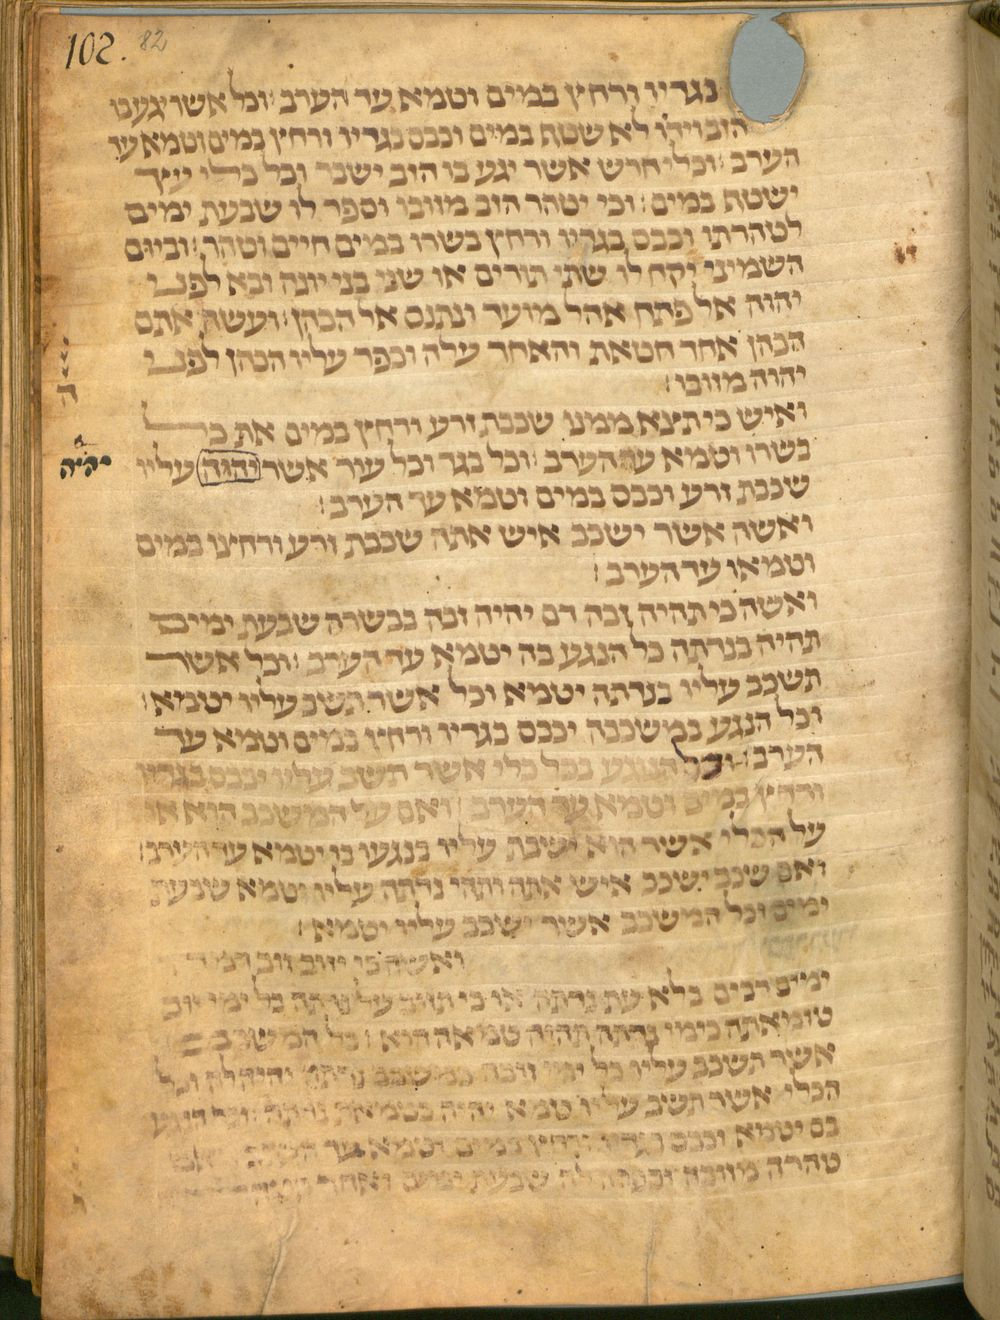 102. 82
בגדיו ורחץ במים וטמא עד הערב׃ וכל אשר יגע בו
הזב וידיו לא שטף במים וכבס בגדיו ורחץ במים וטמא עד
הערב׃ וכלי חרש אשר יגע בו הזב ישבר וכל כלי עץ
ישטף במים׃ וכי יטהר הזב מזובו וספר לו שבעת ימים
לטהרתו וכבס בגדיו ורחץ בשרו במים חיים וטהר׃ וביום
השמיני יקח לו שתי תורים או שני בני יונה ובא לפני
יהוה אל פתח אהל מועד ונתנם אל הכהן׃ ועשה אתם
הכהן אחד חטאת והאחד עלה וכפר עליו הכהן לפני
יהוה מזובו׃
ה
ואיש כי תצא ממנו שכבת זרע ורחץ במים את כל
בשרו וטמא עד הערב׃ וכל בגד וכל עור אשר יהיה עליו
יהיה
שכבת זרע וכבס במים וטמא עד הערב׃
ואשה אשר ישכב איש אתה שכבת זרע ורחצו במים
וטמאו עד הערב׃
ואשה כי תהיה זבה דם יהיה זבה בבשרה שבעת ימים
תהיה בנדתה כל הנגע בה יטמא עד הערב׃ וכל אשר
תשכב עליו בנדתה יטמא וכל אשר תשב עליו יטמא׃
וכל הנגע במשכבה יכבס בגדיו ורחץ במים וטמא עד
הערב׃ וכל הנוגע בכל כלי אשר תשב עליו יכבס בגדיו
ורחץ במים וטמא עד הערב׃ ואם על המשכב הוא או
על הכלי אשר הוא ישבת עליו בנגעו בו יטמא עד הערב׃
ואם שכב ישכב איש אתה ותהי נדתה עליו וטמא שבעת
ימים וכל המשכב אשר ישכב עליו יטמא׃
ואשה כי יזוב זוב דמה
ימים רבים בלא עת נדתה או כי תזוב על נדתה כל ימי זוב
טומאתה כימי נדתה תהיה טמאה הוא׃ כל המשכב
אשר תשכב עליו כל ימי זובה כמשכב נדתה יהיה לה וכל
הכלי אשר תשב עליו טמא יהיה כטמאת נדתה׃ וכל הנגע
בם יטמא וכבס בגדיו ורחץ במים וטמא עד הערב
טהרה מזובה וספרה לה שבעת ימים ואחר